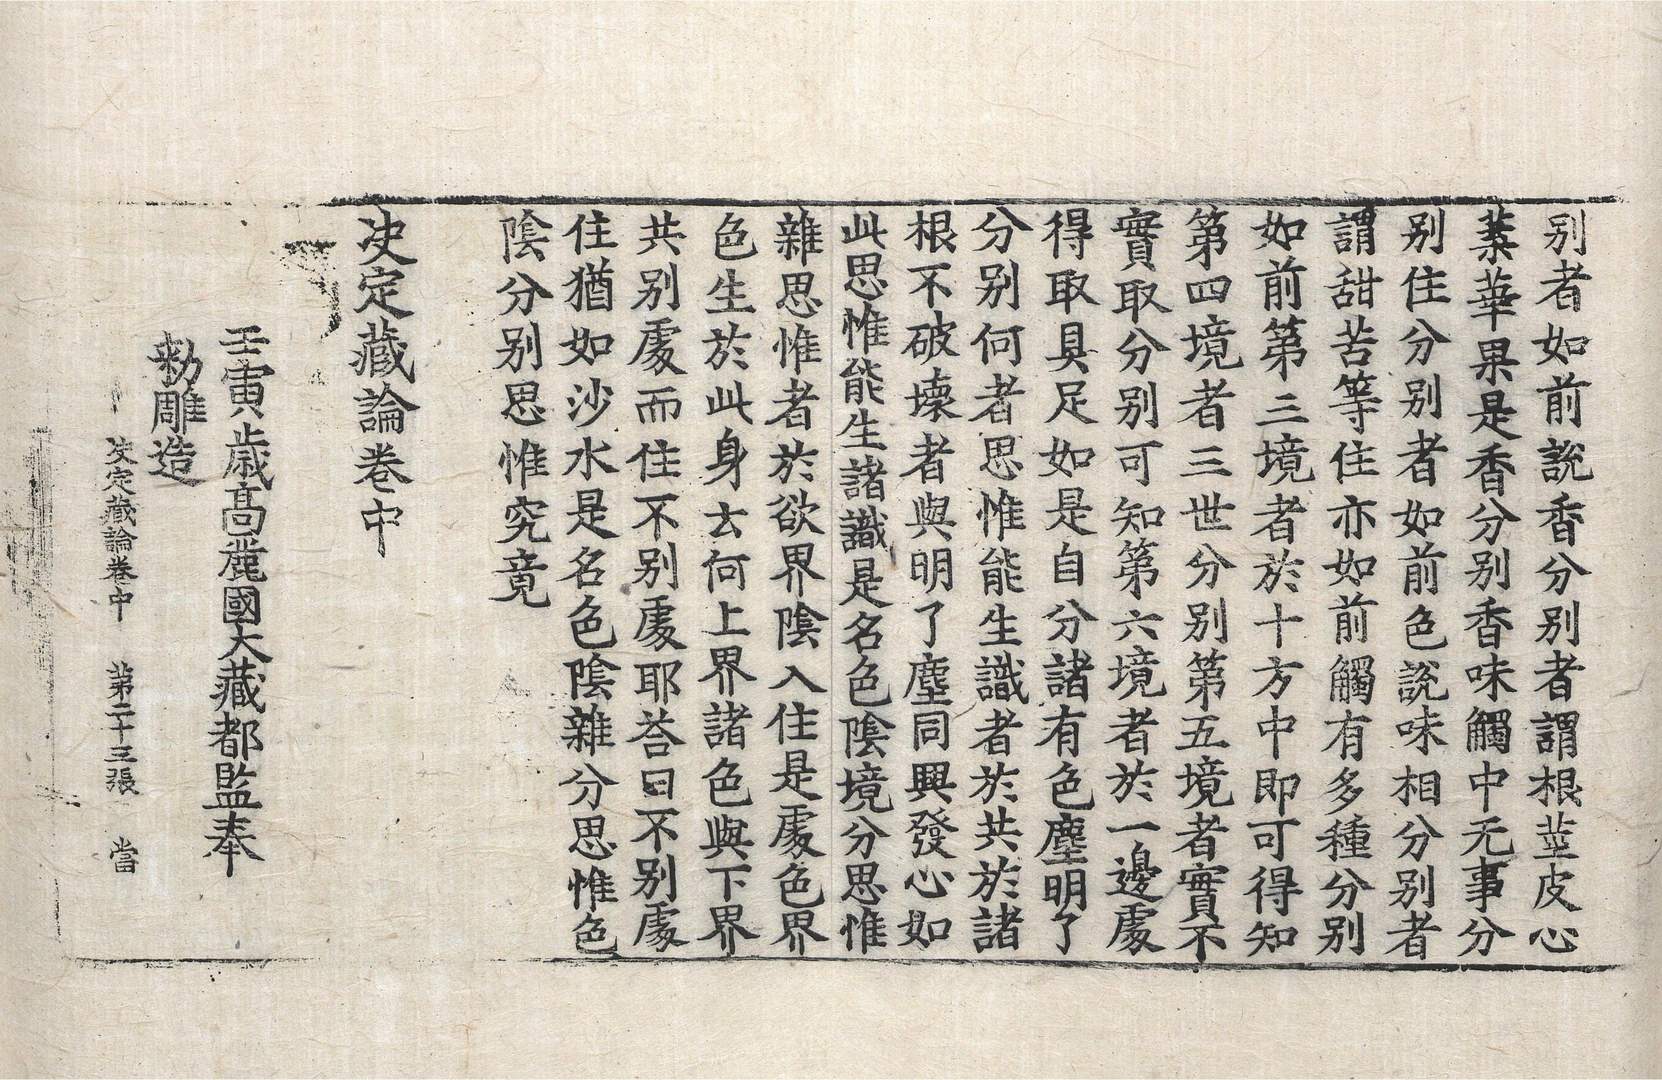 别者如前說香分别者謂根莖皮心
葉華果是香分别香味觸中无事分
别住分别者如前色說味相分别者
謂甜苦等住亦如前觸有多種分别
如前第三境者於十方中即可得知
第四境者三世分别第五境者實不
實取分别可知第六境者於一邊處
得取具足如是自分諸有色塵明了
分别何者思惟能生識者於共於諸
根不破壞者與明了塵同興發心如
此思惟能生諸識是名色陰境分思惟
雜思惟者於欲界陰入住是處色界
色生於此身云何上界諸色與下界
共别處而住不别處耶荅曰不别處
住猶如沙水是名色陰雜分思惟色
陰分别思惟究竟
决定藏論卷中
壬寅歲高麗國大藏都監奉
勑雕造
决定藏論卷中 第二十三張 當